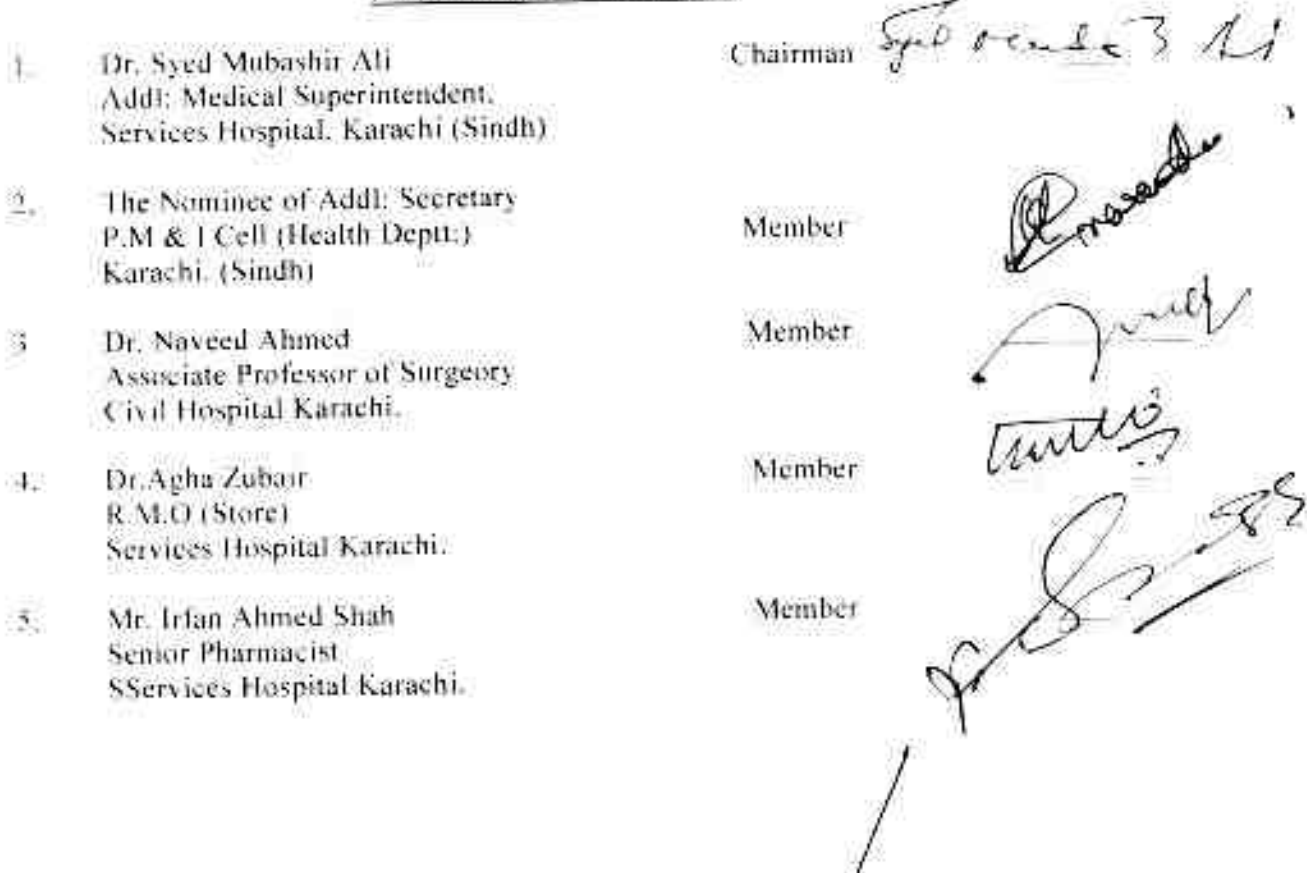 1. Dr. Syed Mubashir Ali Chairman
Addl: Medical Superintendent,
Services Hospital, Karachi (Sindh)
2. The Nominee of Addl: Secretary
P.M & I Cell (Health Deptt:) Member
Karachi. (Sindh)
3 Dr. Naveed Ahmed Member
Associate Professor of Surgeory
Civil Hospital Karachi.
4. Dr.Agha Zubair Member
R.M.O (Store)
Services Hospital Karachi.
5. Mr. Irfan Ahmed Shah Member
Senior Pharmacist
SServices Hospital Karachi.